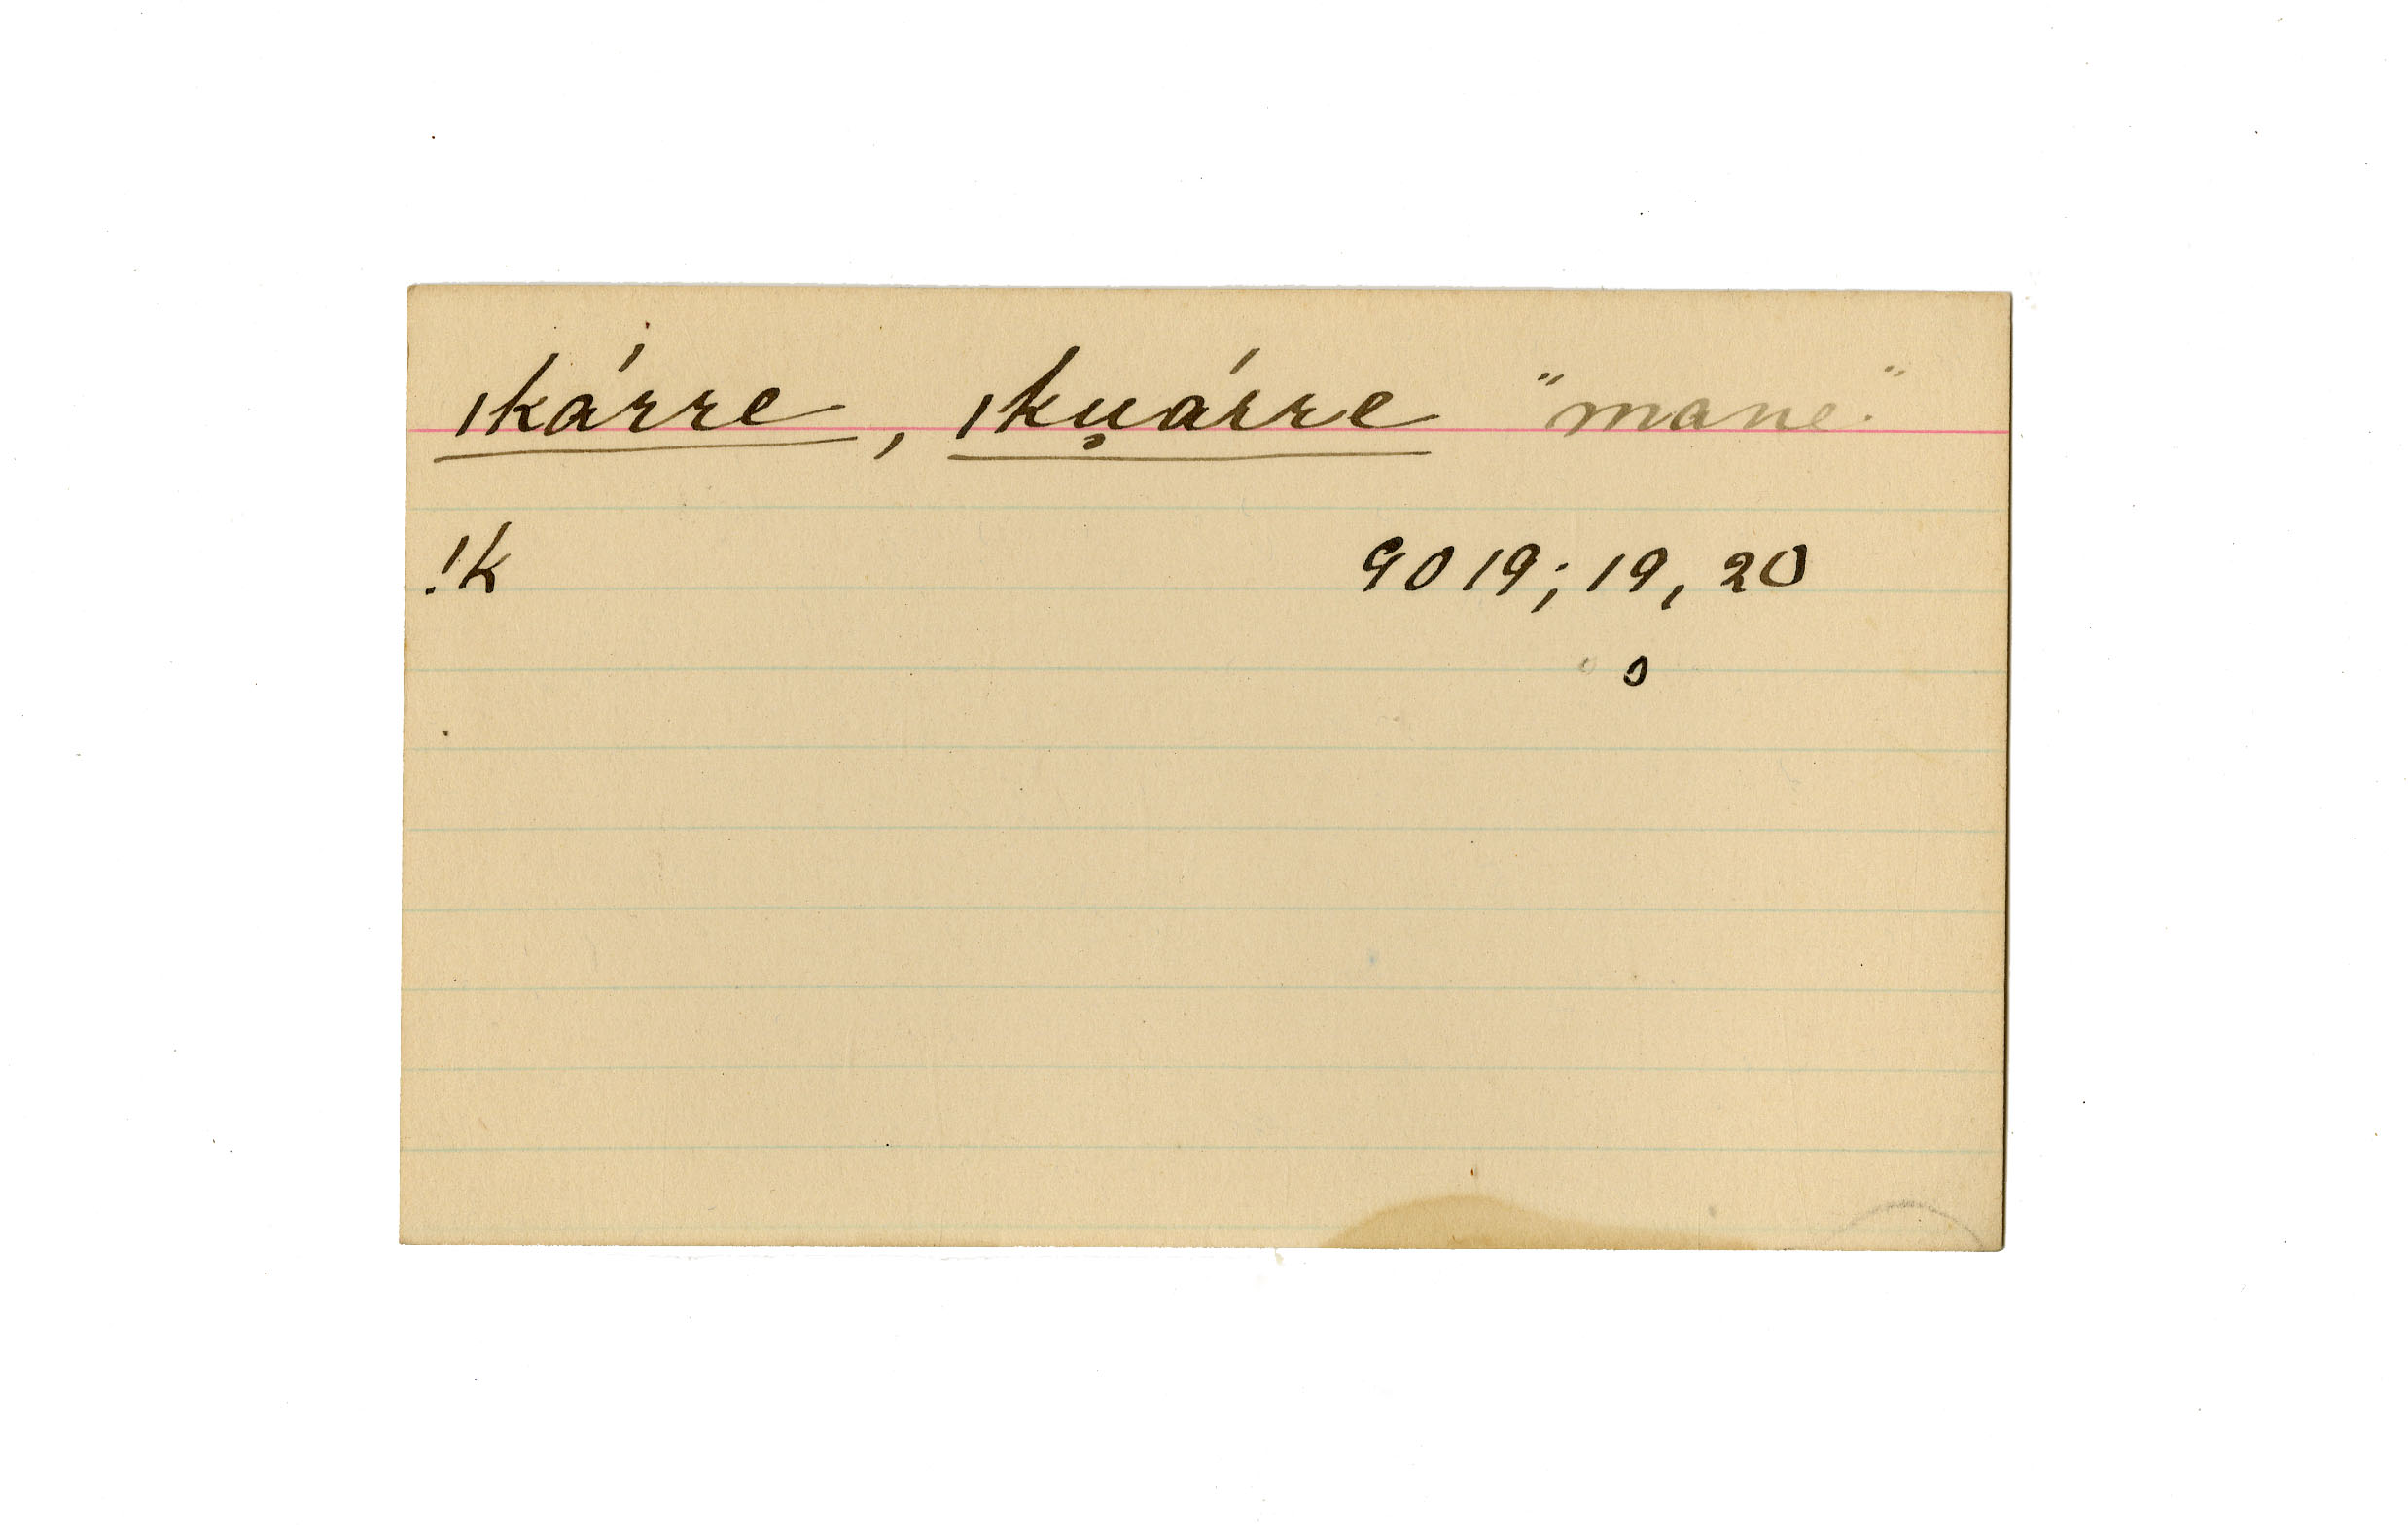 ǀkárre, ǀku̥árre "mane."
!k 9019; 19, 20